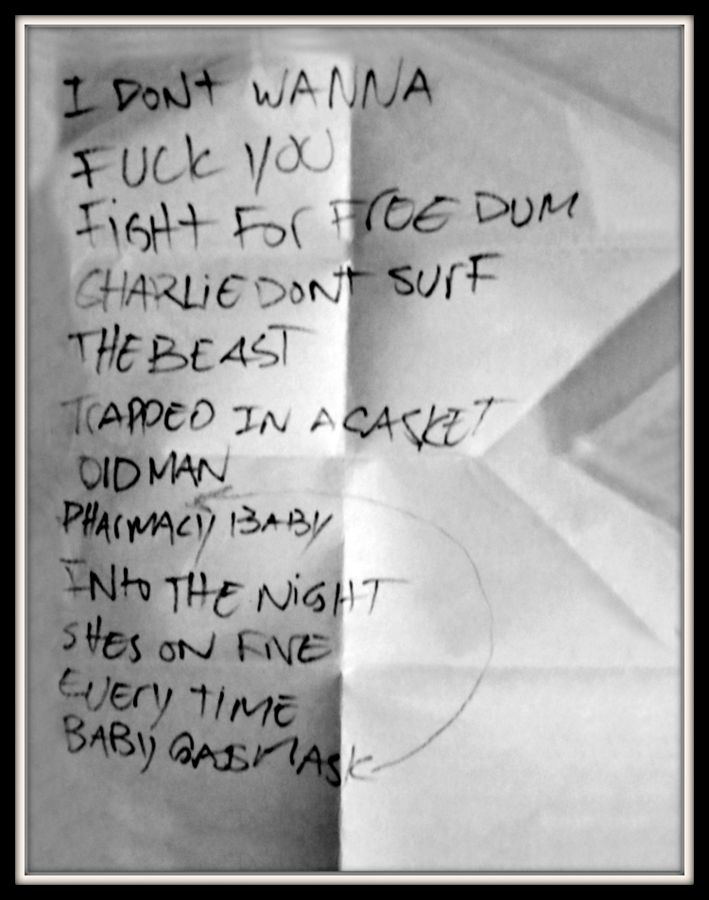 I DONT WANNA
FUCK YOU
FIGHT FOR FREEDUM
CHARLIE DONT SURF
THE BEAST
TRAPPED IN A CASKET
OLD MAN
PHARMACY BABY
INTO THE NIGHT
SHES ON FIVE
EVERY TIME
BABY GASMASK